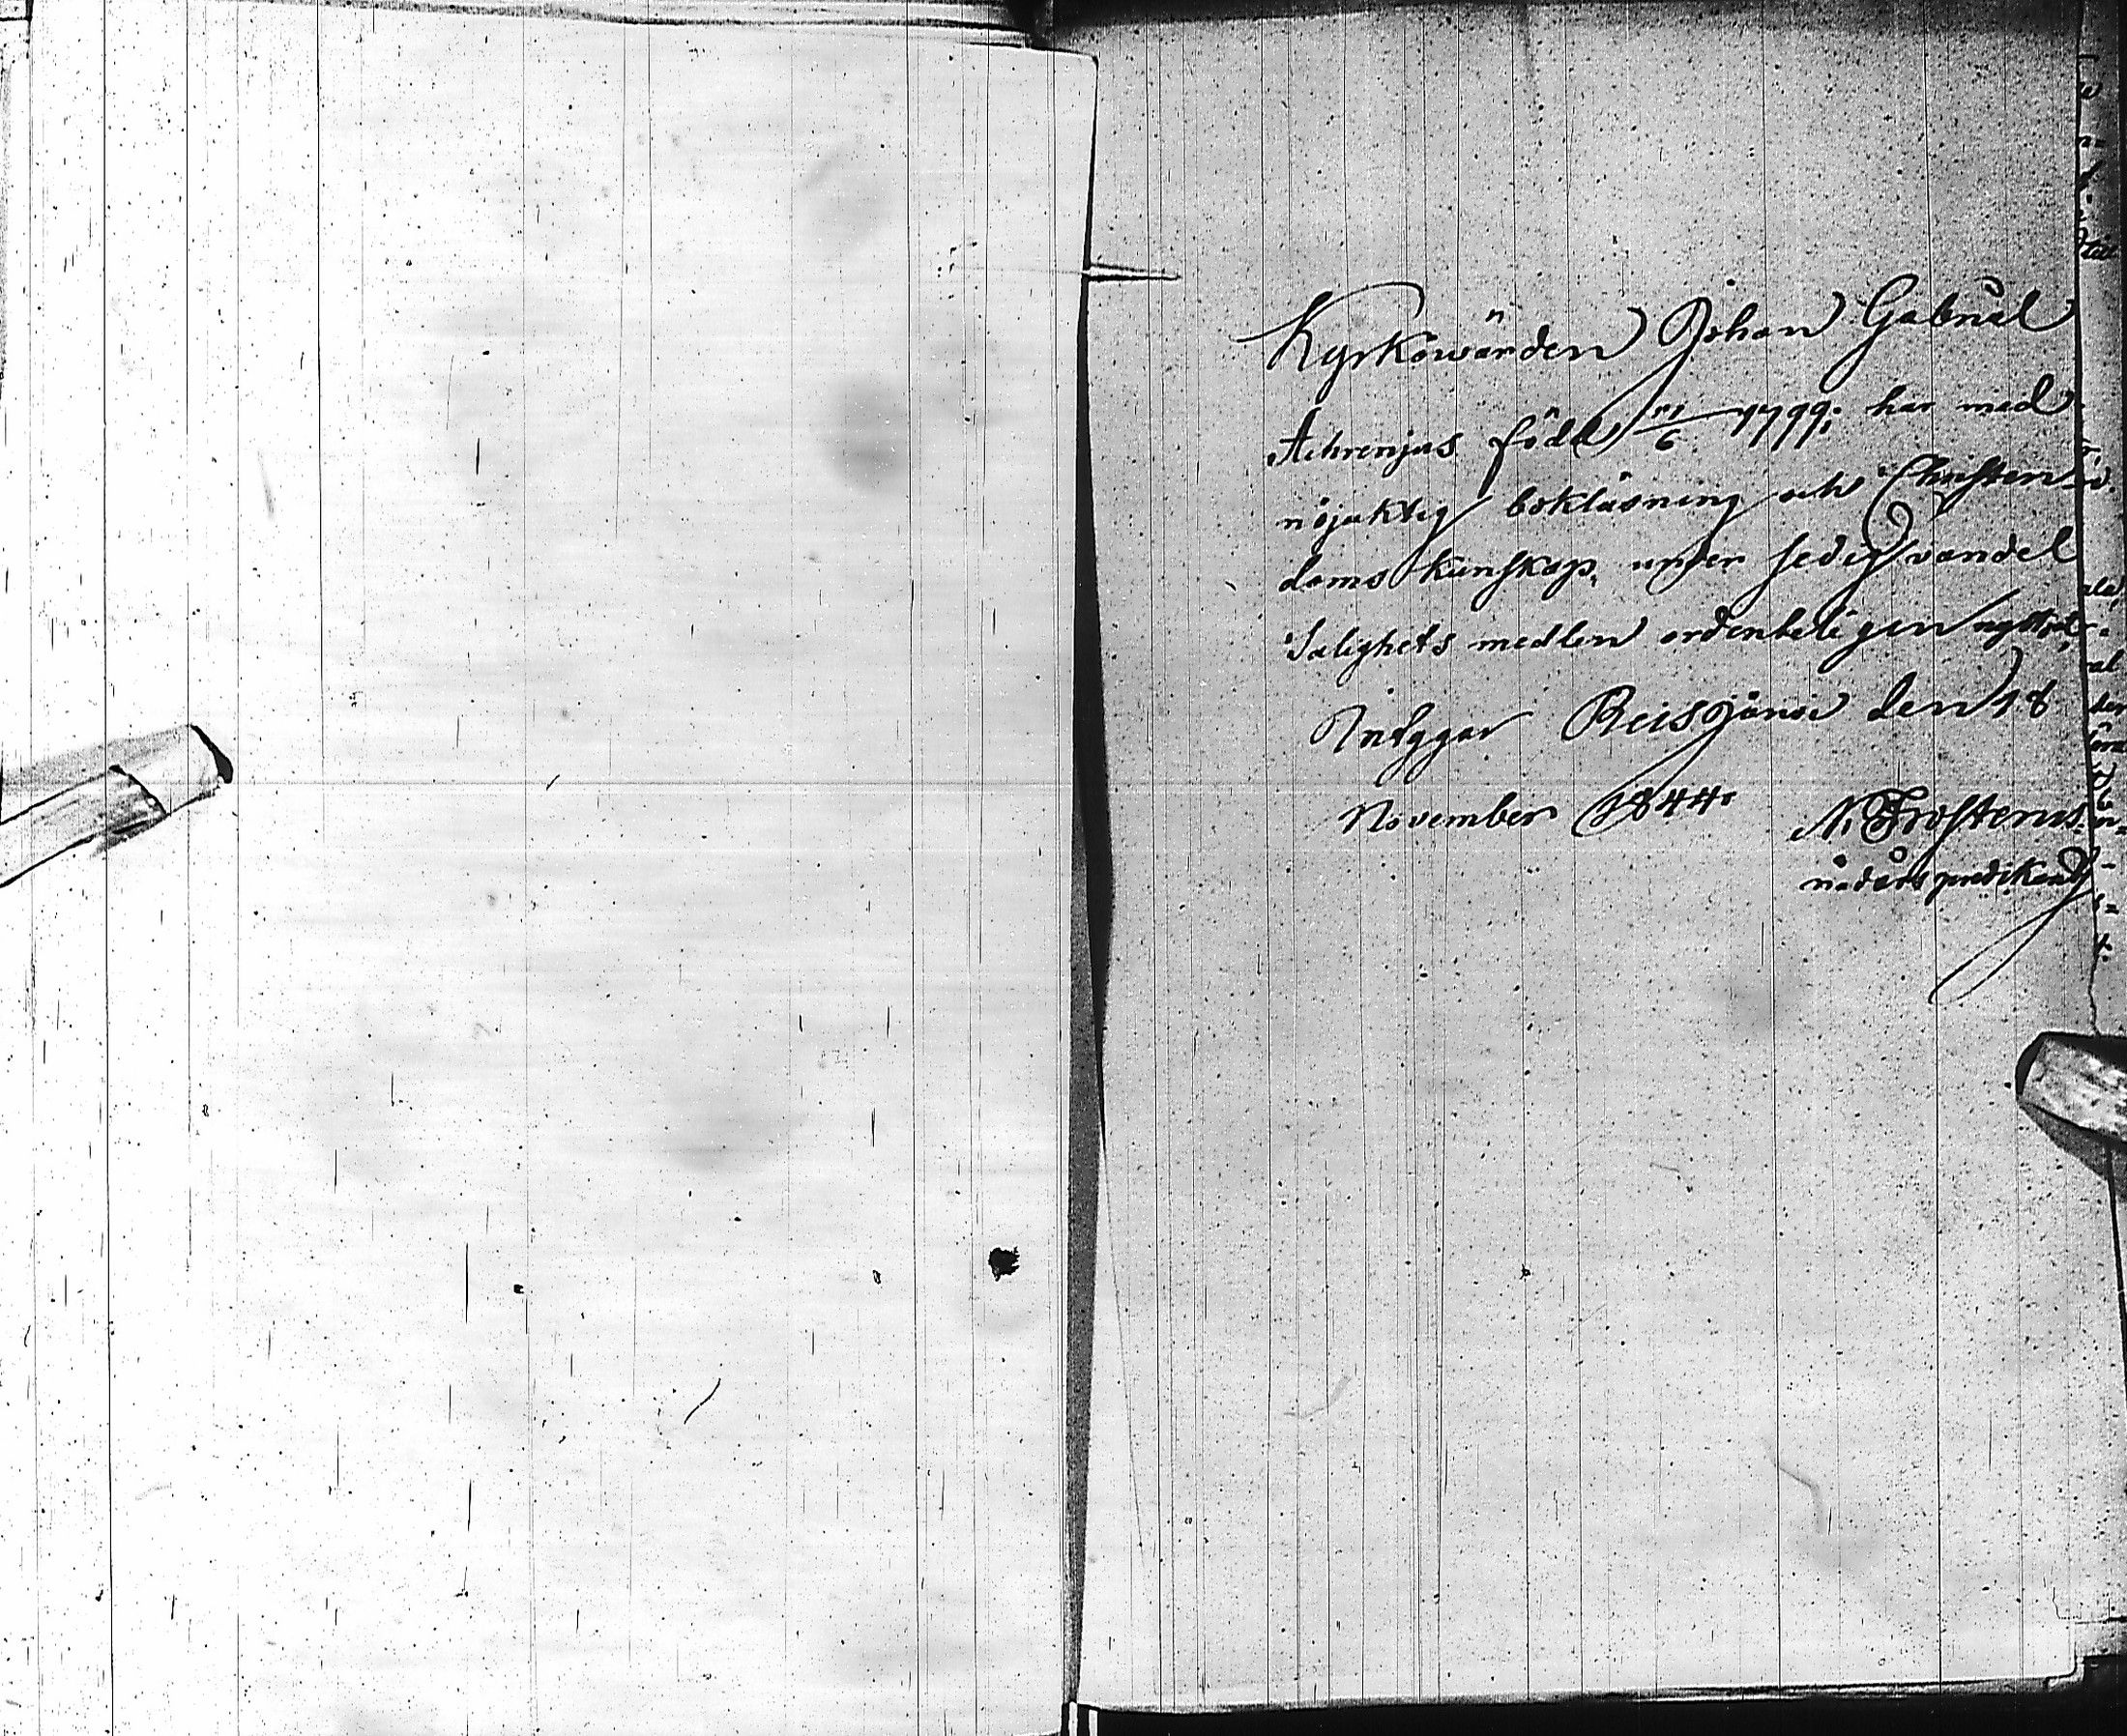 Kyrkowärden Johan Gabriel
Achrenjus född /6 1799; har med
nöjaktig bokläsning och Christen-
doms kunskap, under sedig vandel
Salighets medlen ordenteligen nyttjat,
Intygar Reisjärvi den 18
November 1844.
N. Frosterus.
nådårs predikant